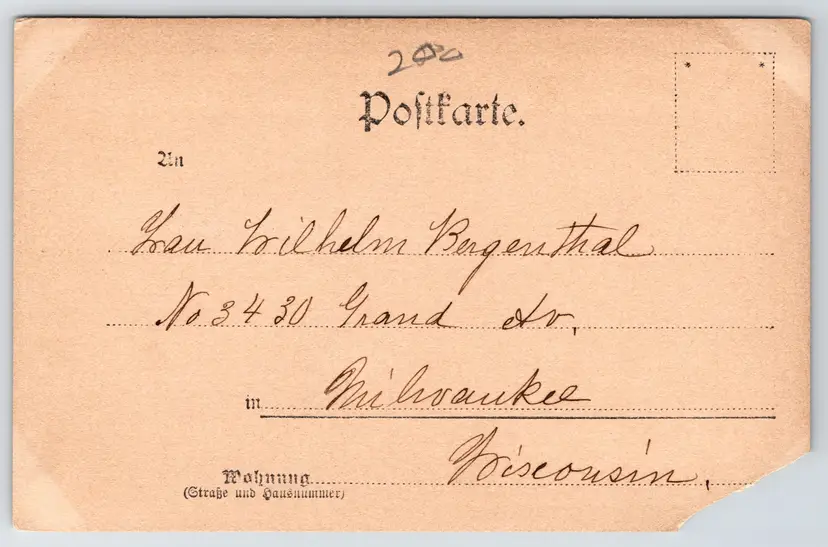 200
Postkarte.
An
Frau Wilhelm Bergenthal
No 3430 Grand Av,
in Milwaukee
Wisconsin,
Wohnung
(Straße und Hausnummer)